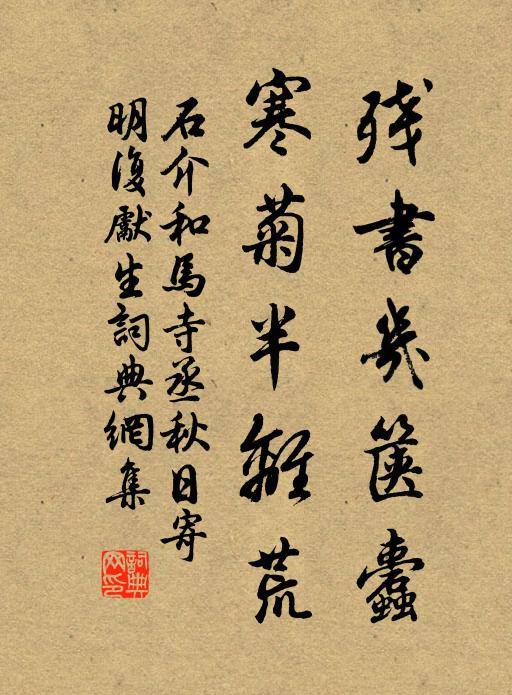 残書幾篋蠹
寒菊半離荒
石介和馬寺丞秋日寄
明復獻生詞典網集
詞典网印